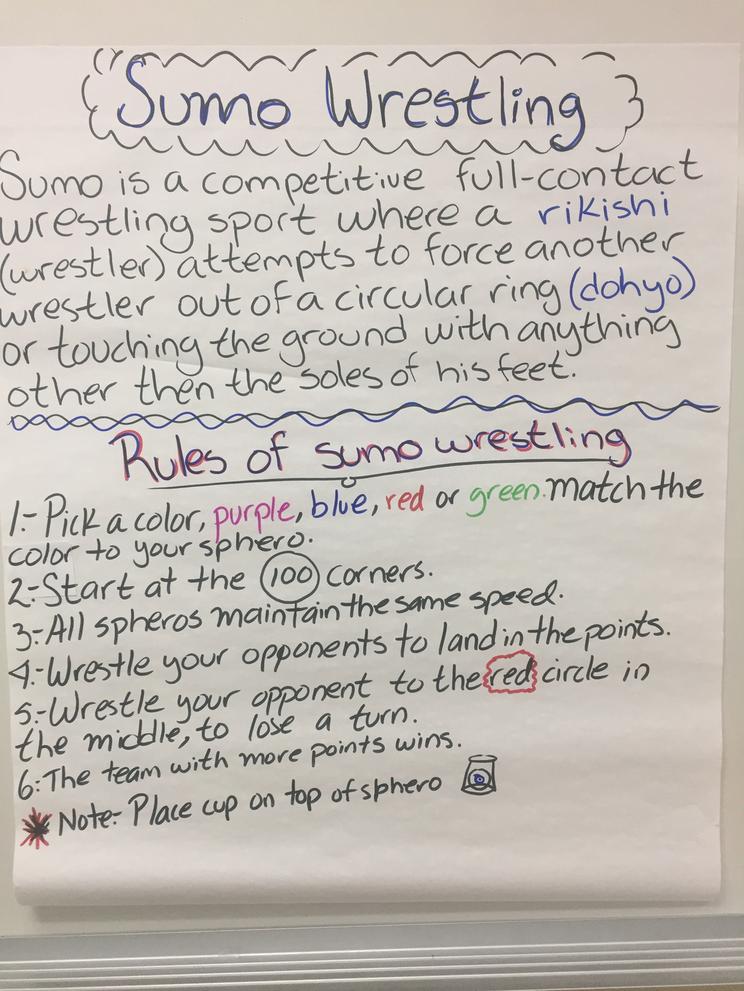 Sumo Wrestling
Sumo is a competitive full-contact
wrestling sport where a rikishi
(wrestler) attempts to force another
wrestler out of a circular ring (dohyo)
or touching the ground with anything
other then the soles of his feet.
Rules of sumo wrestling
1.- Pick a color, purple, blue, red or green. Match the
color to your sphero.
2.- Start at the 100 corners.
3.- All spheros maintain the same speed.
4.- Wrestle your opponents to land in the points.
5.- Wrestle your opponent to the red circle in
the middle, to lose a turn.
6: The team with more points wins.
Note:- Place cup on top of sphero